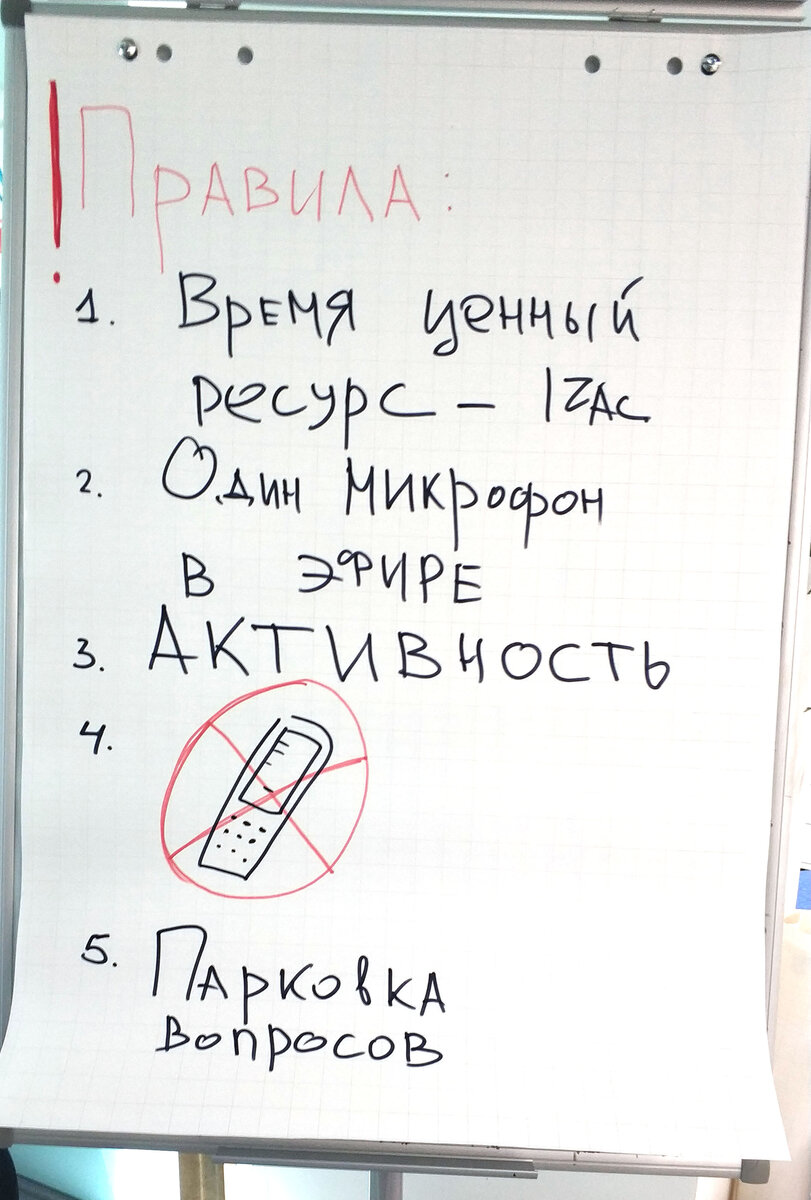 ! Правила:
1. Время ценный
ресурс – 1 zас
2. Один микрофон
в эфире
3. Активность
4.
5. Парковка
вопросов